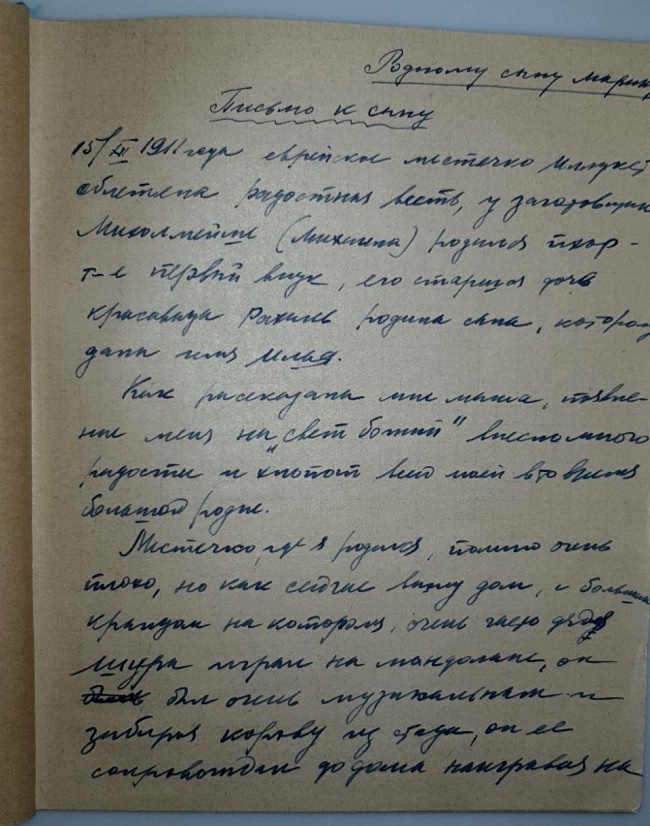 Родному сыну Марик
Письмо к сыну
15/XII 1911 года еврейское местечко Иллукст
облетела радостная весть, у заготовщик
(Михеля) родился
первый внук, его старшая дочь
красавица Рахиль родила сына, котором
дали имя Илья.
Как рассказала мне мама, появле-
ние меня на „свет божий" внесло много
радости и хлопот всей моей в то время
большой родне.
Местечко, где я родился, помню очень
плохо, но как сейчас вижу дом, с большим
крыльцом на котором, очень часто дядя
Шура играл на мандолине, он
был очень музыкальным и
забирая корову из стада, он её
сопровождал до дома наигрывая на